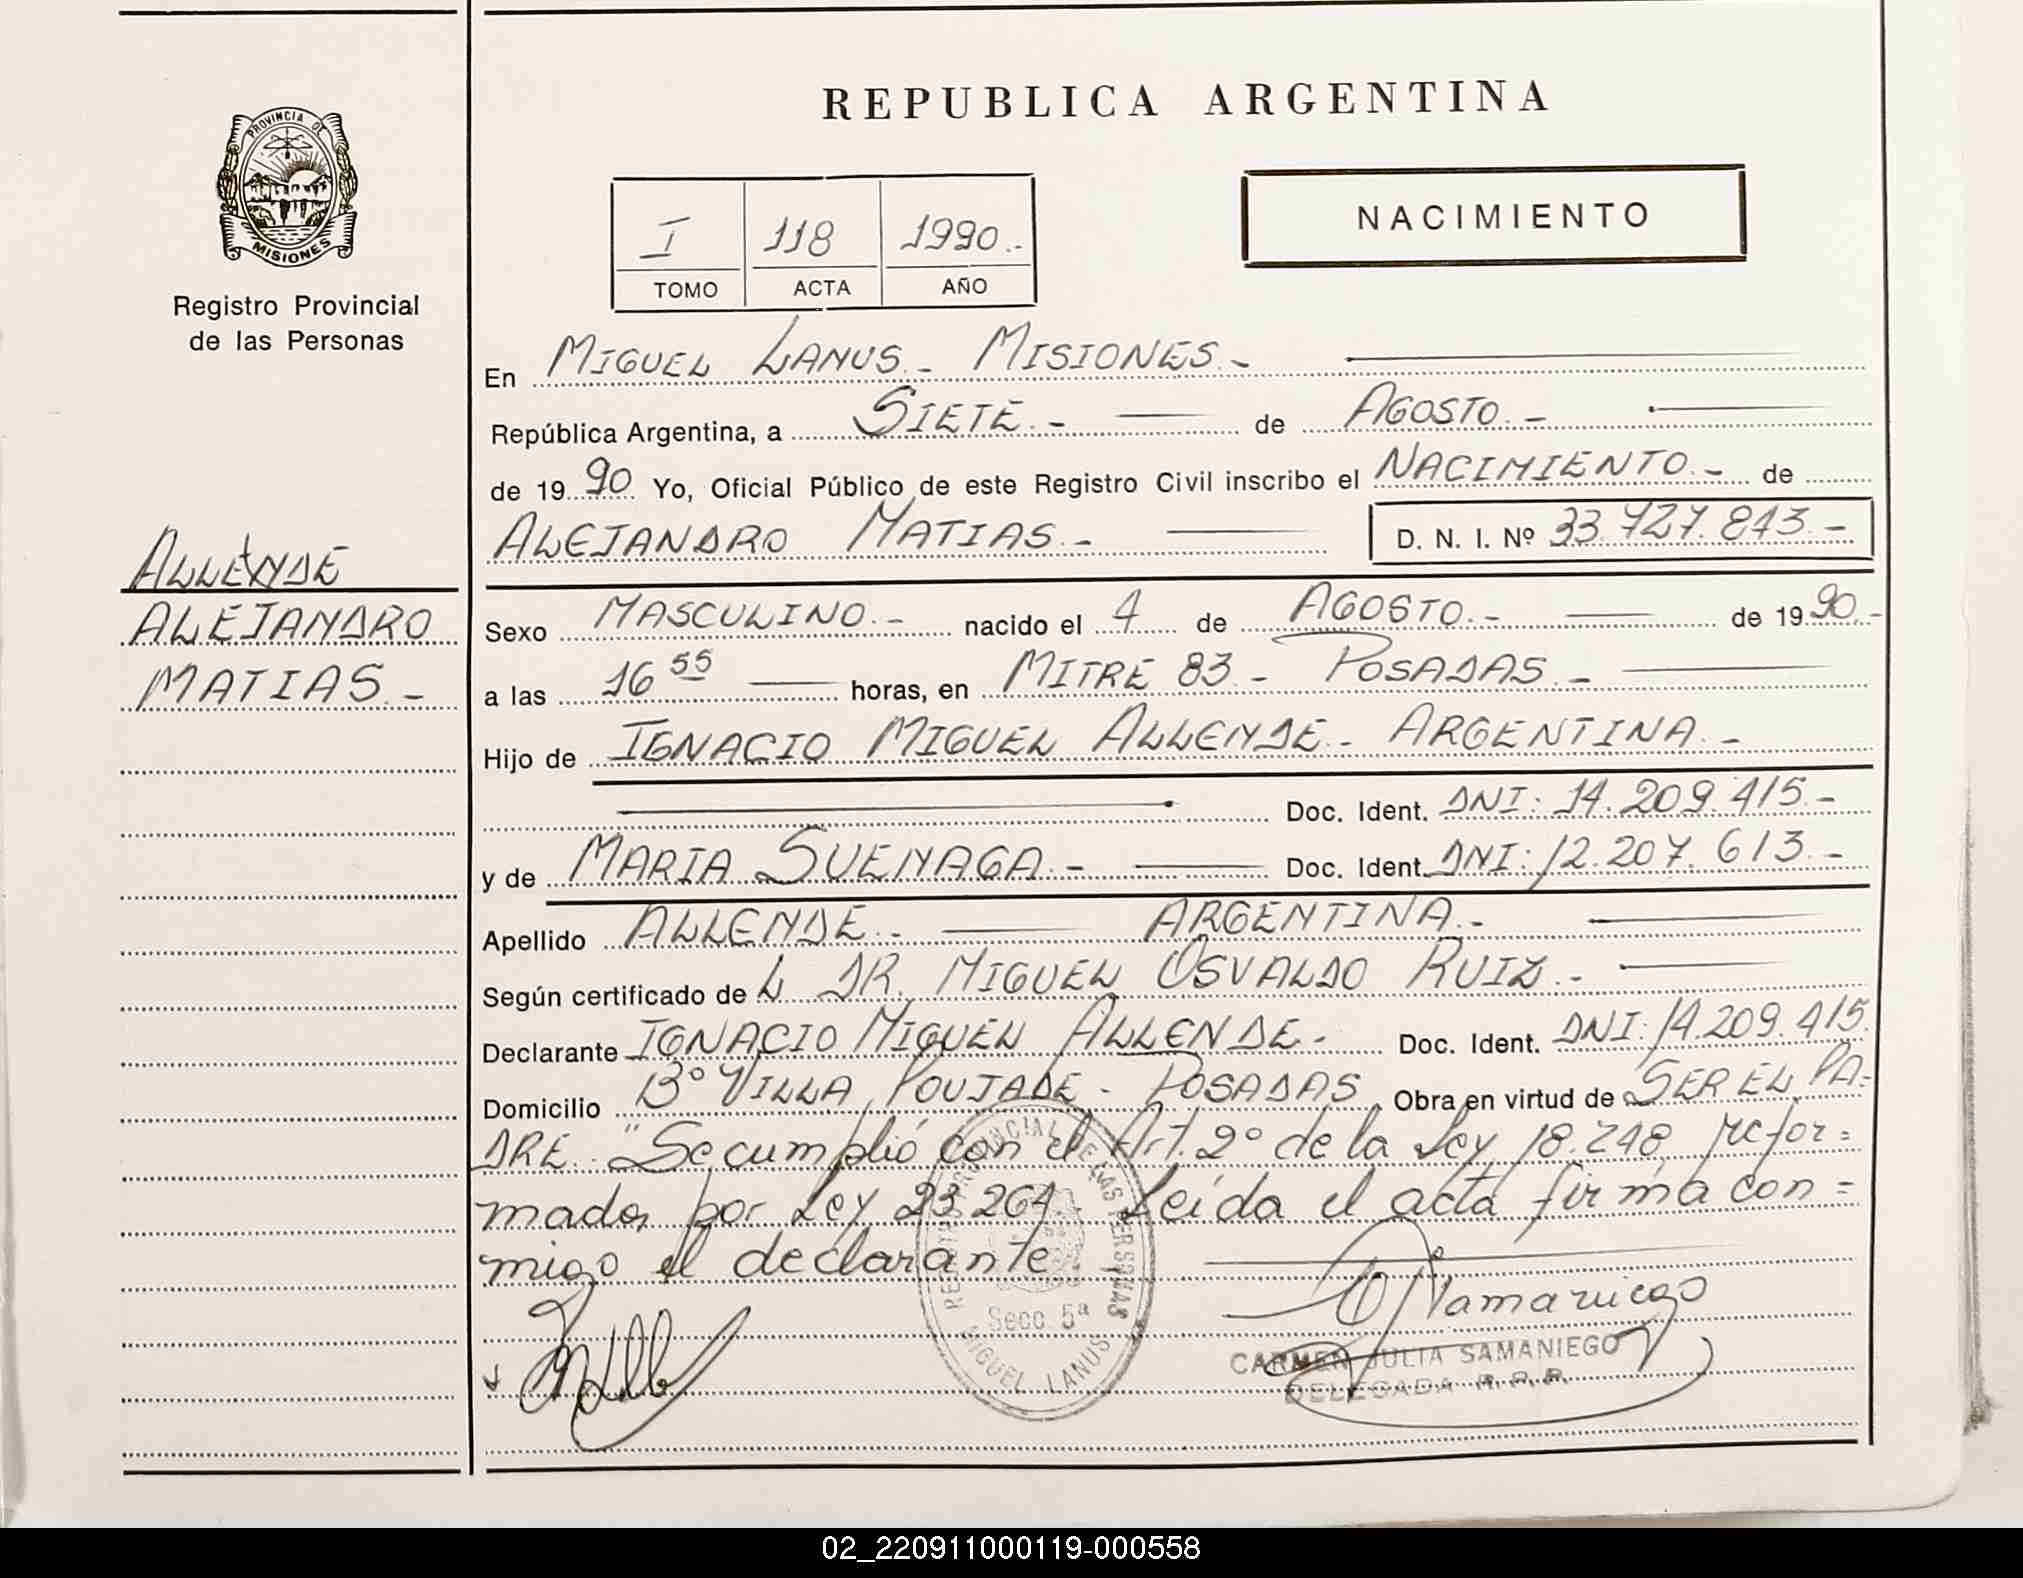 REPUBLICA ARGENTINA
PROVINCIA DE
MISIONES
Registro Provincial
de las Personas
I 118 1990.-
TOMO ACTA AÑO
NACIMIENTO
En MIGUEL LANUS.- MISIONES.-
República Argentina, a SIETE.- de AGOSTO.-
de 1990 Yo, Oficial Público de este Registro Civil inscribo el NACIMIENTO.- de
ALEJANDRO MATIAS.- D. N. I. Nº 33.727.813.-
ALLENDE
ALEJANDRO
MATIAS.-
Sexo MASCULINO.- nacido el 4 de AGOSTO.- de 1990.-
a las 16 55 horas, en MITRE 83.- POSADAS.-
Hijo de IGNACIO MIGUEL ALLENDE.- ARGENTINA.-
Doc. Ident. DNI: 14.209.415.-
y de MARIA SUENAGA.- Doc. Ident. DNI: 12.207.613.-
Apellido ALLENDE.- ARGENTINA.-
Según certificado de L DR. MIGUEL OSVALDO RUIZ.-
Declarante IGNACIO MIGUEL ALLENDE.- Doc. Ident. DNI: 14.209.415.
Domicilio Bº VILLA POUJADE - POSADAS Obra en virtud de SER EL PA=
DRE.- "Se cumplió con el Art. 2º de la Ley 18.248 refor=
mados por Ley 23.264.- Leída el acta firma con=
migo el declarante
REGISTRO PROVINCIAL DE LAS PERSONAS
Secc. 5ª
MIGUEL LANUS
CARMEN JULIA SAMANIEGO
DELEGADA R. P. P.
02_220911000119-000558